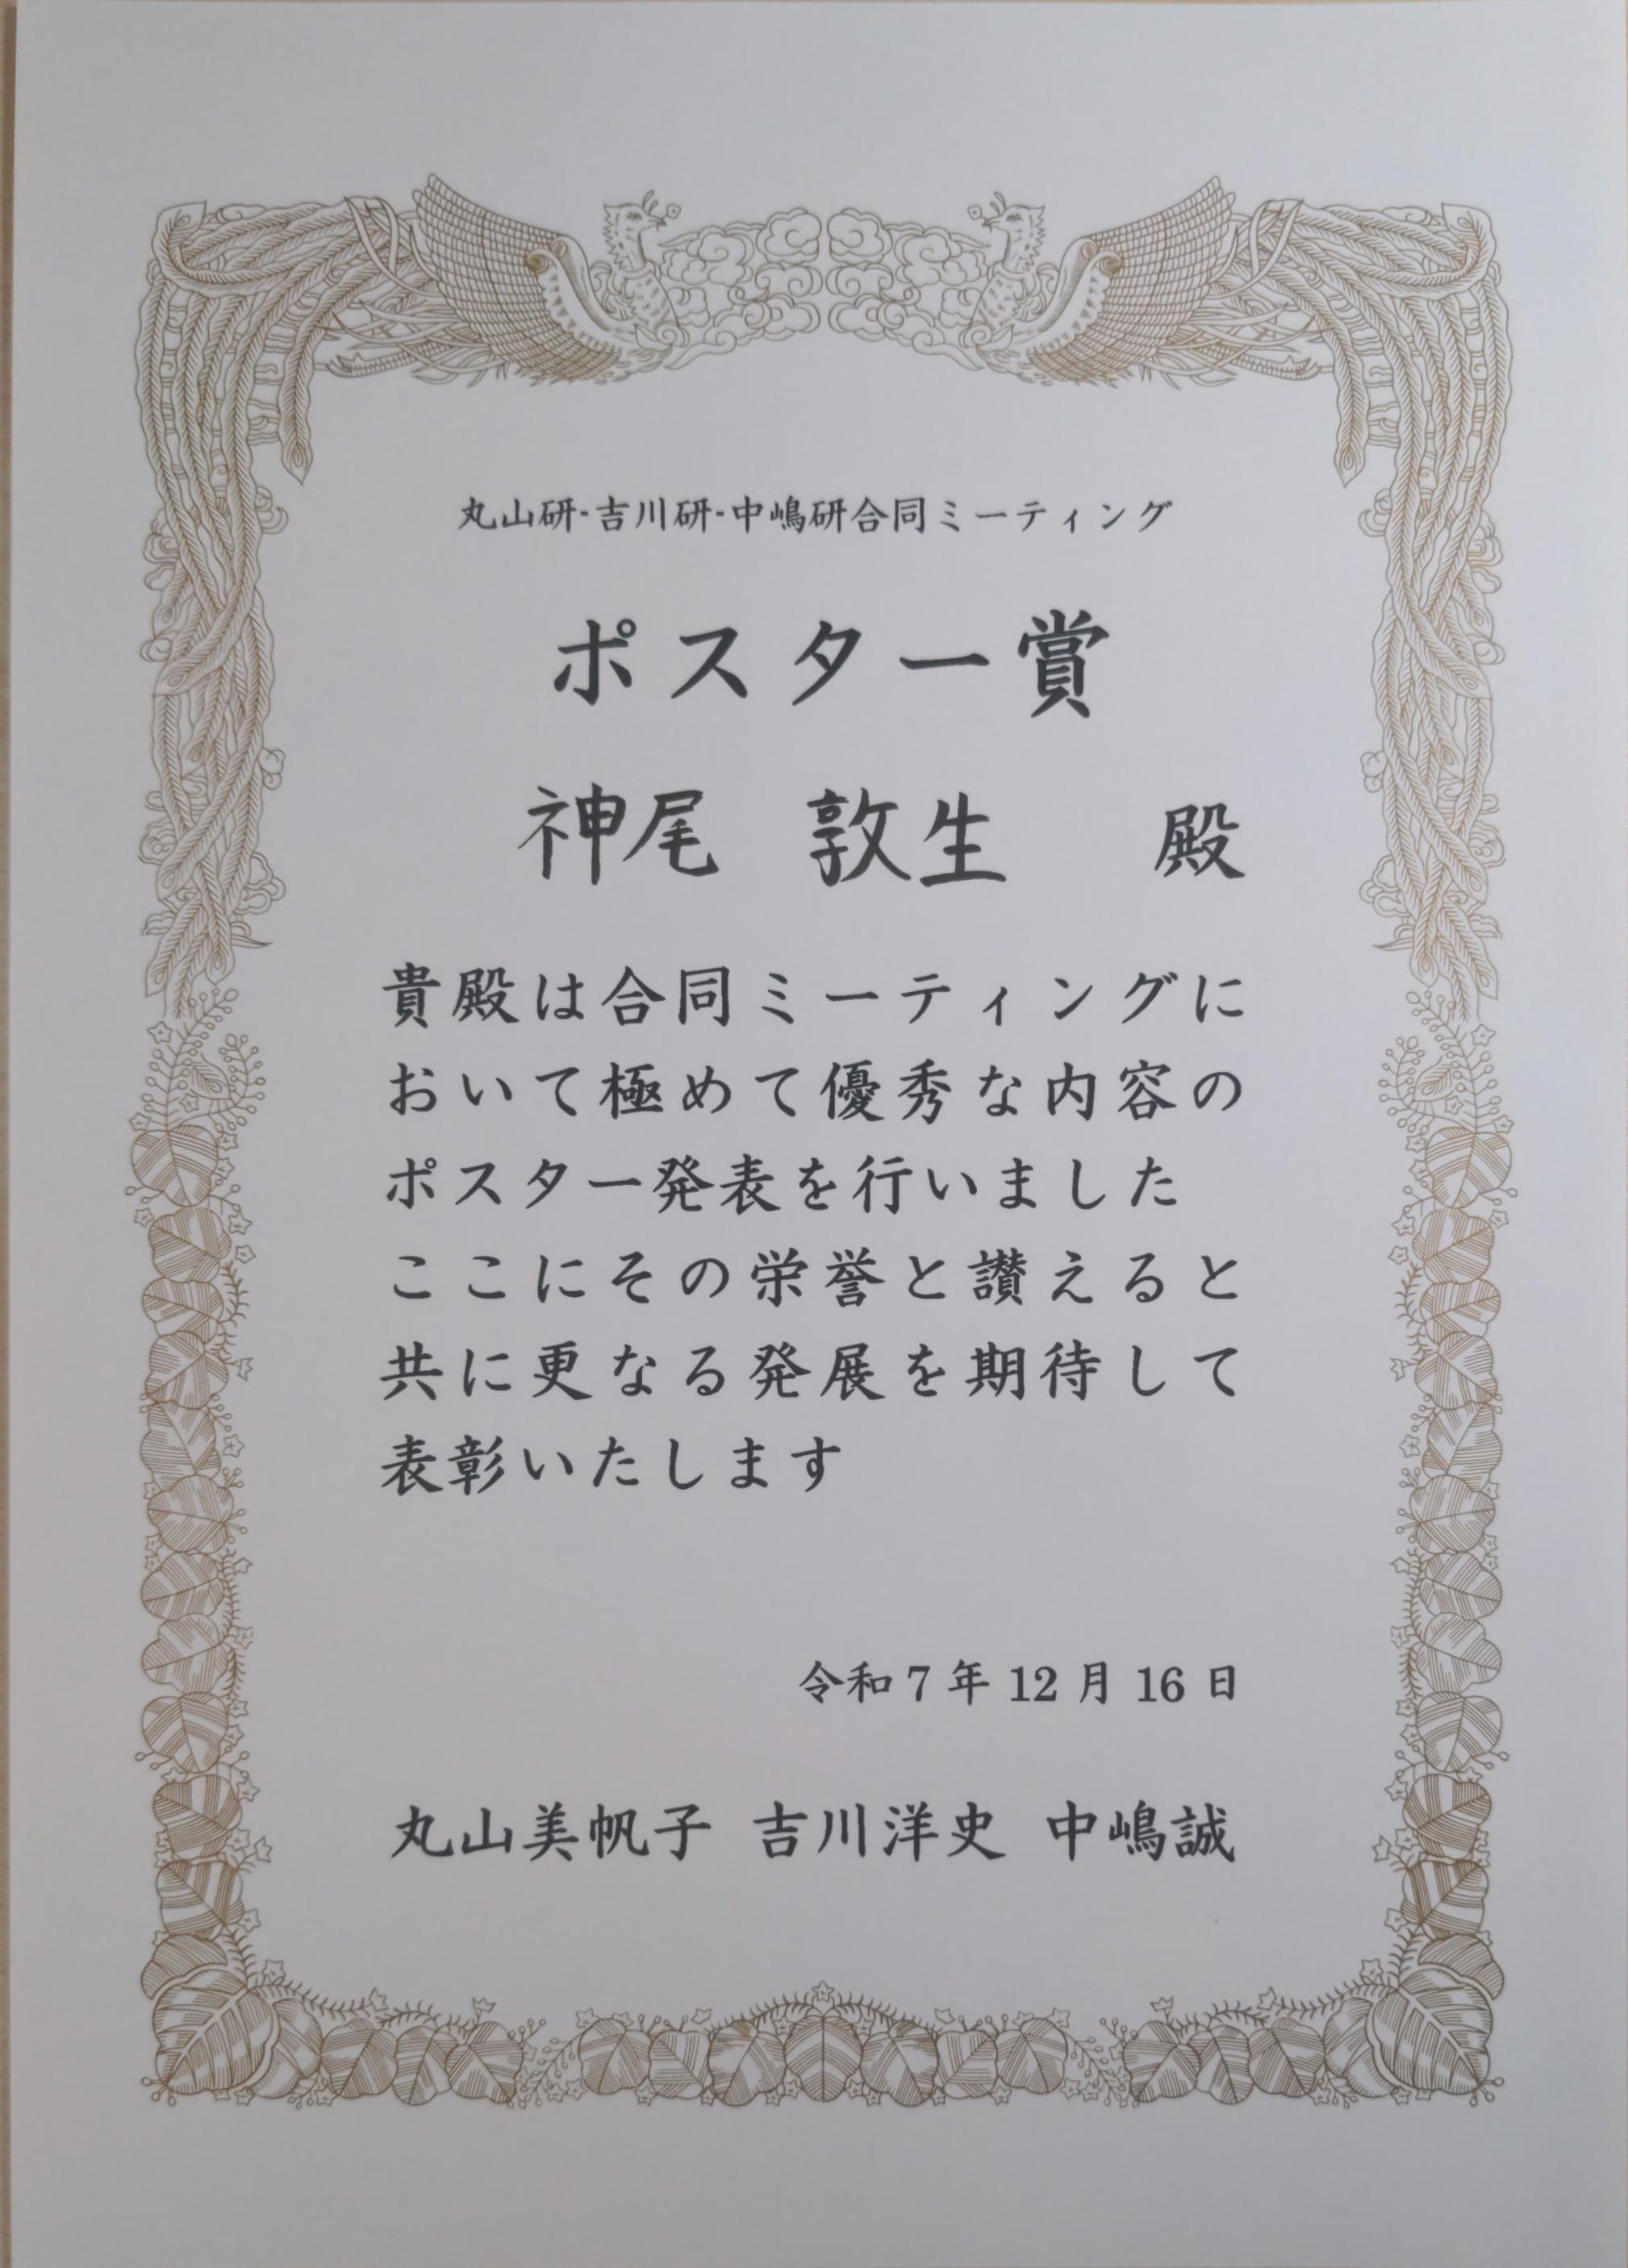 丸山研-吉川研-中嶋研合同ミーティング
ポスター賞
神尾 敦生 殿
貴殿は合同ミーティングに
おいて極めて優秀な内容の
ポスター発表を行いました
ここにその栄誉と讃えると
共に更なる発展を期待して
表彰いたします
令和7年12月16日
丸山美帆子 吉川洋史 中嶋誠